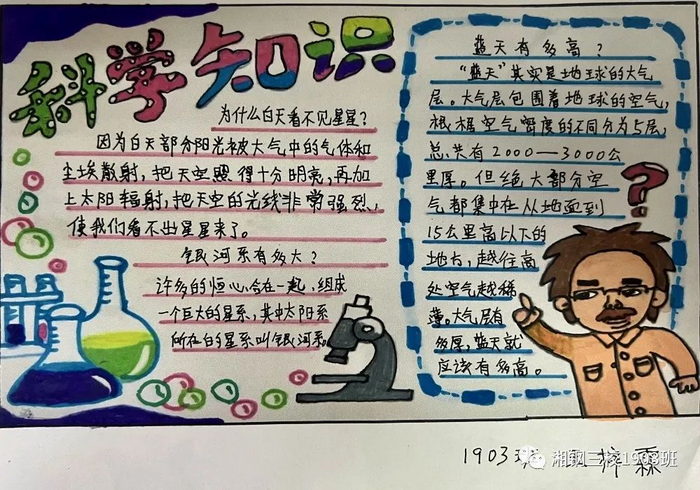 科学知识
为什么白天看不见星星？
因为白天部分阳光被大气中的气体和
尘埃散射，把天空照得十分明亮，再加
上太阳辐射，把天空的光线非常强烈，
使我们看不出星星来了。
银河系有多大？
许多的恒心合在一起，组成
一个巨大的星系，其中太阳系
所在的星系叫银河系。
蓝天有多高？
"蓝天"其实是地球的大气
层。大气层包围着地球的空气，
根据空气密度的不同分为5层，
总共有2000—3000公
里厚。但绝大部分空
气都集中在从地面到
15公里高以下的
地方，越往高
处空气越稀
薄。大气层有
多厚，蓝天就
应该有多高。
?
1903班
霖
湘钢三校1903班